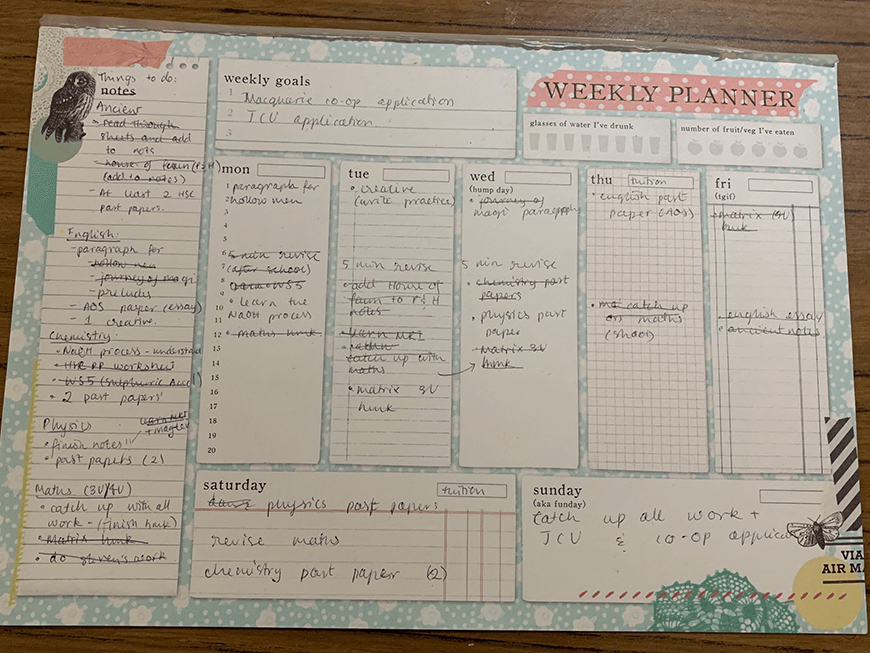 Things to do:
notes
Ancient
read through
sheets and add
to nots
house of faun (P & H)
(add to notes)
- At least 2 HSC
past papers.
English:
- paragraph for
- hollow men
- journey of magi
- preludes
- AOS paper (essay)
- 1 creative.
Chemistry:
• NaOH process - understand
• HSC PP worksheet
• WS5 (sulphuric Acid)
• 2 past papers
Physics
learn MRI
• finish notes
• past papers (2)
Maths (3U/4U)
• catch up with all
work - (finish hmk)
• Matrix hmk
• do steven's work
weekly goals
1 Macquarie co-op application
2 JCU application
3
WEEKLY PLANNER
glasses of water I've drunk
number of fruit/veg I've eaten
mon
1 paragraph for
2 hollow men
3
4
5
6 5 min revise
7 (after school)
8 WS5
9 • learn the
10 NaOH process
11
12 • maths hmk
13
14
15
16
17
18
19
20
tue
• creative
(write practice)
5 min revise
• add House of
faun to P & H
notes
• learn MRI
catch up with
maths
• matrix 3U
hmk
wed
(hump day)
• journey of
magi paragraph
5 min revise
• chemistry past
papers
• physics past
paper
• Matrix 3U
hmk
thu
tuition
• english past
paper (AOS)
catch up
on maths
(school)
fri
(tgif)
• matrix 4U
hmk
• english essay
• ancient notes
saturday
tuition
physics past papers
revise maths
chemistry past paper (2)
sunday
(aka funday)
Catch up all work +
JCU & co-op applica
VIA
AIR MA